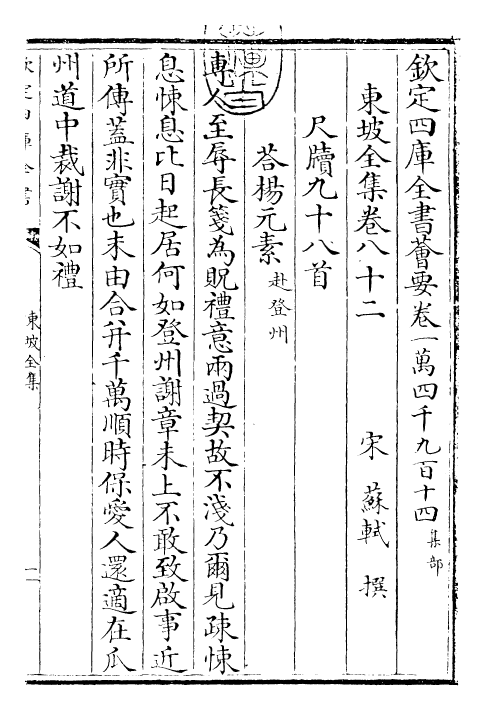 欽定四庫全書薈要卷一萬四千九百十四集部
東坡全集卷八十二
宋 蘇軾 撰
尺牘九十八首
荅楊元素赴登州
專人至辱長箋為貺禮意兩過契故不淺乃爾見疎悚
息悚息比日起居何如登州謝章未上不敢致啟事近
所傳蓋非實也未由合幷千萬順時保愛人還適在瓜
州道中裁謝不如禮
東坡全集